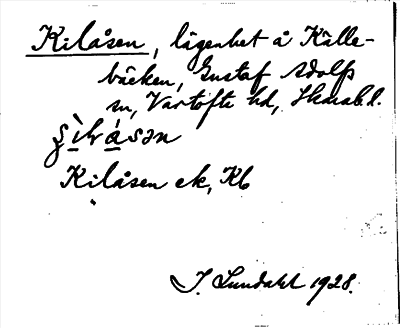 Kilåsen, lägenhet å Källe-
bäcken, Gustaf Adolfs
sn, Vartofta hd, Skarab. l.
Kilåsen ek, Kb
J. Lundahl 1928.